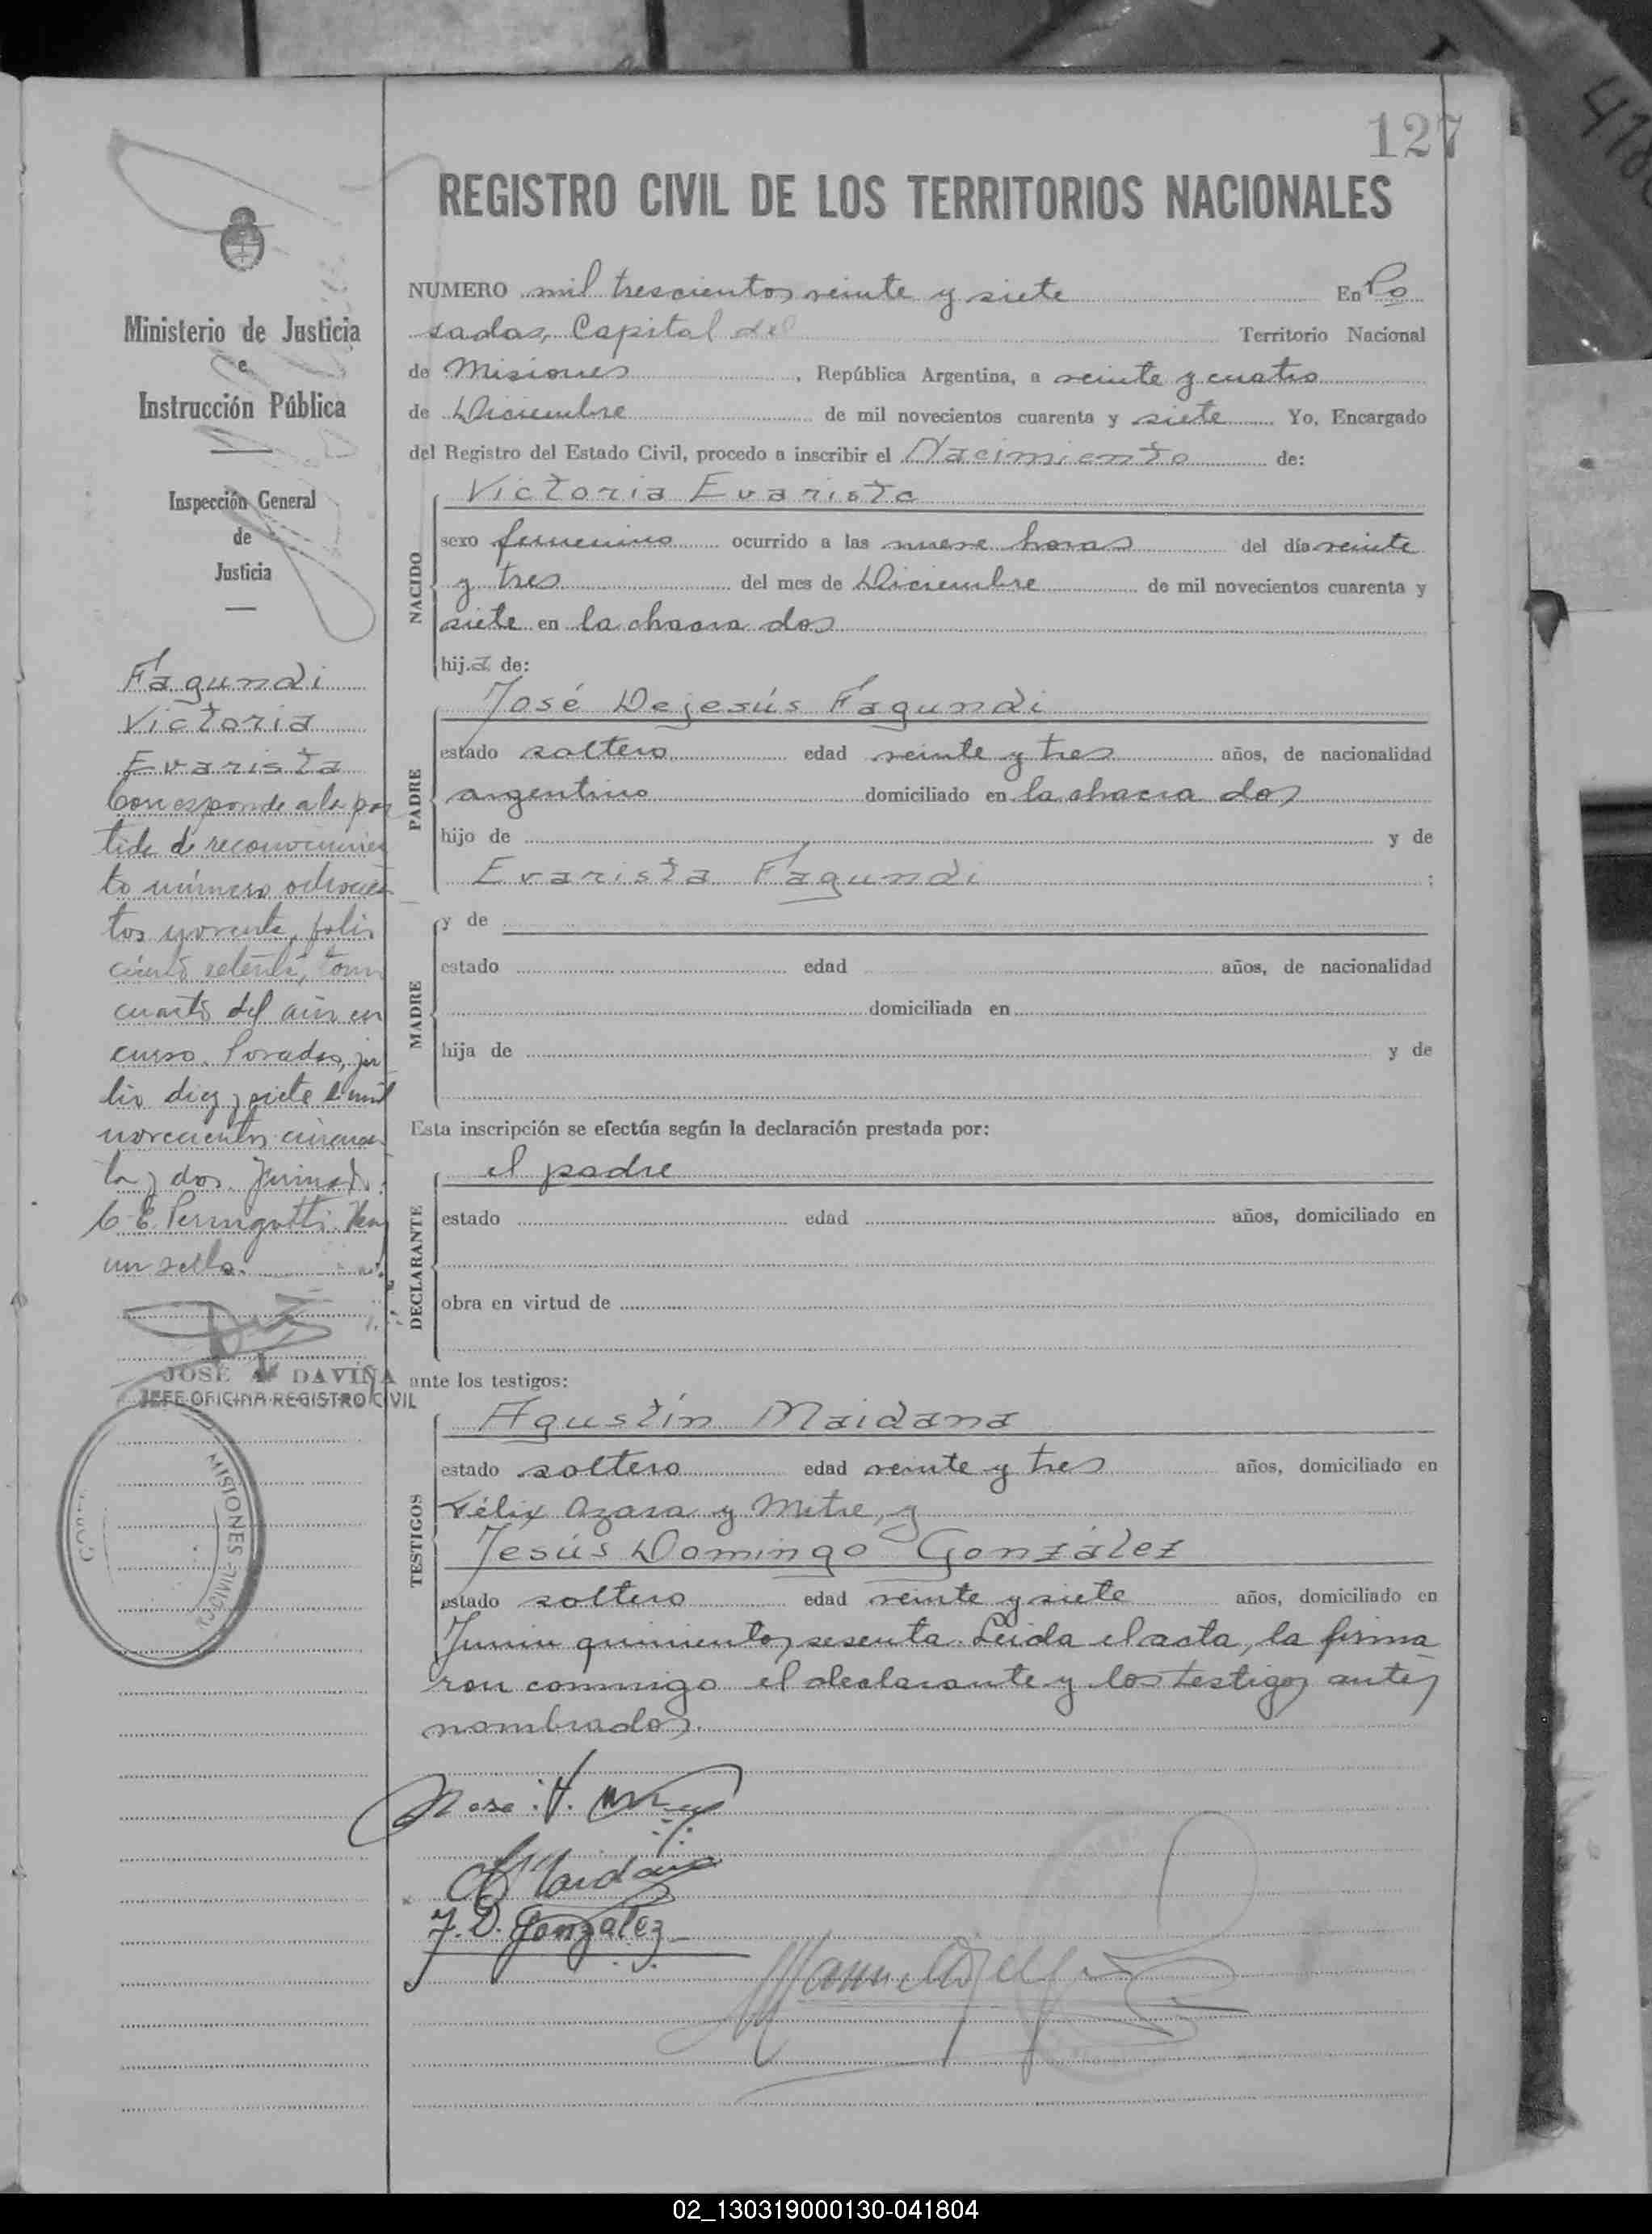 127
REGISTRO CIVIL DE LOS TERRITORIOS NACIONALES
NUMERO mil trescientos veinte y siete En Po
sadas, Capital del Territorio Nacional
de Misiones, República Argentina, a veinte y cuatro
de Diciembre de mil novecientos cuarenta y siete Yo, Encargado
del Registro del Estado Civil, procedo a inscribir el Nacimiento de:
NACIDO
Victoria Evarista
sexo femenino ocurrido a las nueve horas del día veinte
y tres del mes de Diciembre de mil novecientos cuarenta y
siete en la chacra dos
hij.a de:
PADRE
José Dejesús Fagundi
estado soltero edad veinte y tres años, de nacionalidad
argentino domiciliado en la chacra dos
hijo de y de
Evarista Fagundi ;
MADRE
y de
estado edad años, de nacionalidad
domiciliada en
hija de y de
Esta inscripción se efectúa según la declaración prestada por:
DECLARANTE
el padre
estado edad años, domiciliado en
obra en virtud de
ante los testigos:
TESTIGOS
Agustín Maidana
estado soltero edad veinte y tres años, domiciliado en
Félix Azara y Mitre, y
Jesús Domingo González
estado soltero edad veinte y siete años, domiciliado en
Junin quinientos sesenta. Leida el acta, la firma
ron conmigo el declarante y los testigos antes
nombrados.
Maidana
J. D. González
Ministerio de Justicia
e
Instrucción Pública
Inspección General
de
Justicia
Fagundi
Victoria
Evarista
Corresponde a la par
tida de reconocimien
to número ochocien
tos noventa, folio
ciento setenta, tomo
cuarto del año en
curso. Posadas, ju
lio diez y siete de mil
novecientos cincuen
ta y dos. Firmado:
C. E. Peringotti. Hay
un sello.
JOSE A. DAVIÑA
JEFE OFICINA REGISTRO CIVIL
MISIONES
CIVIL
4180
02_130319000130-041804